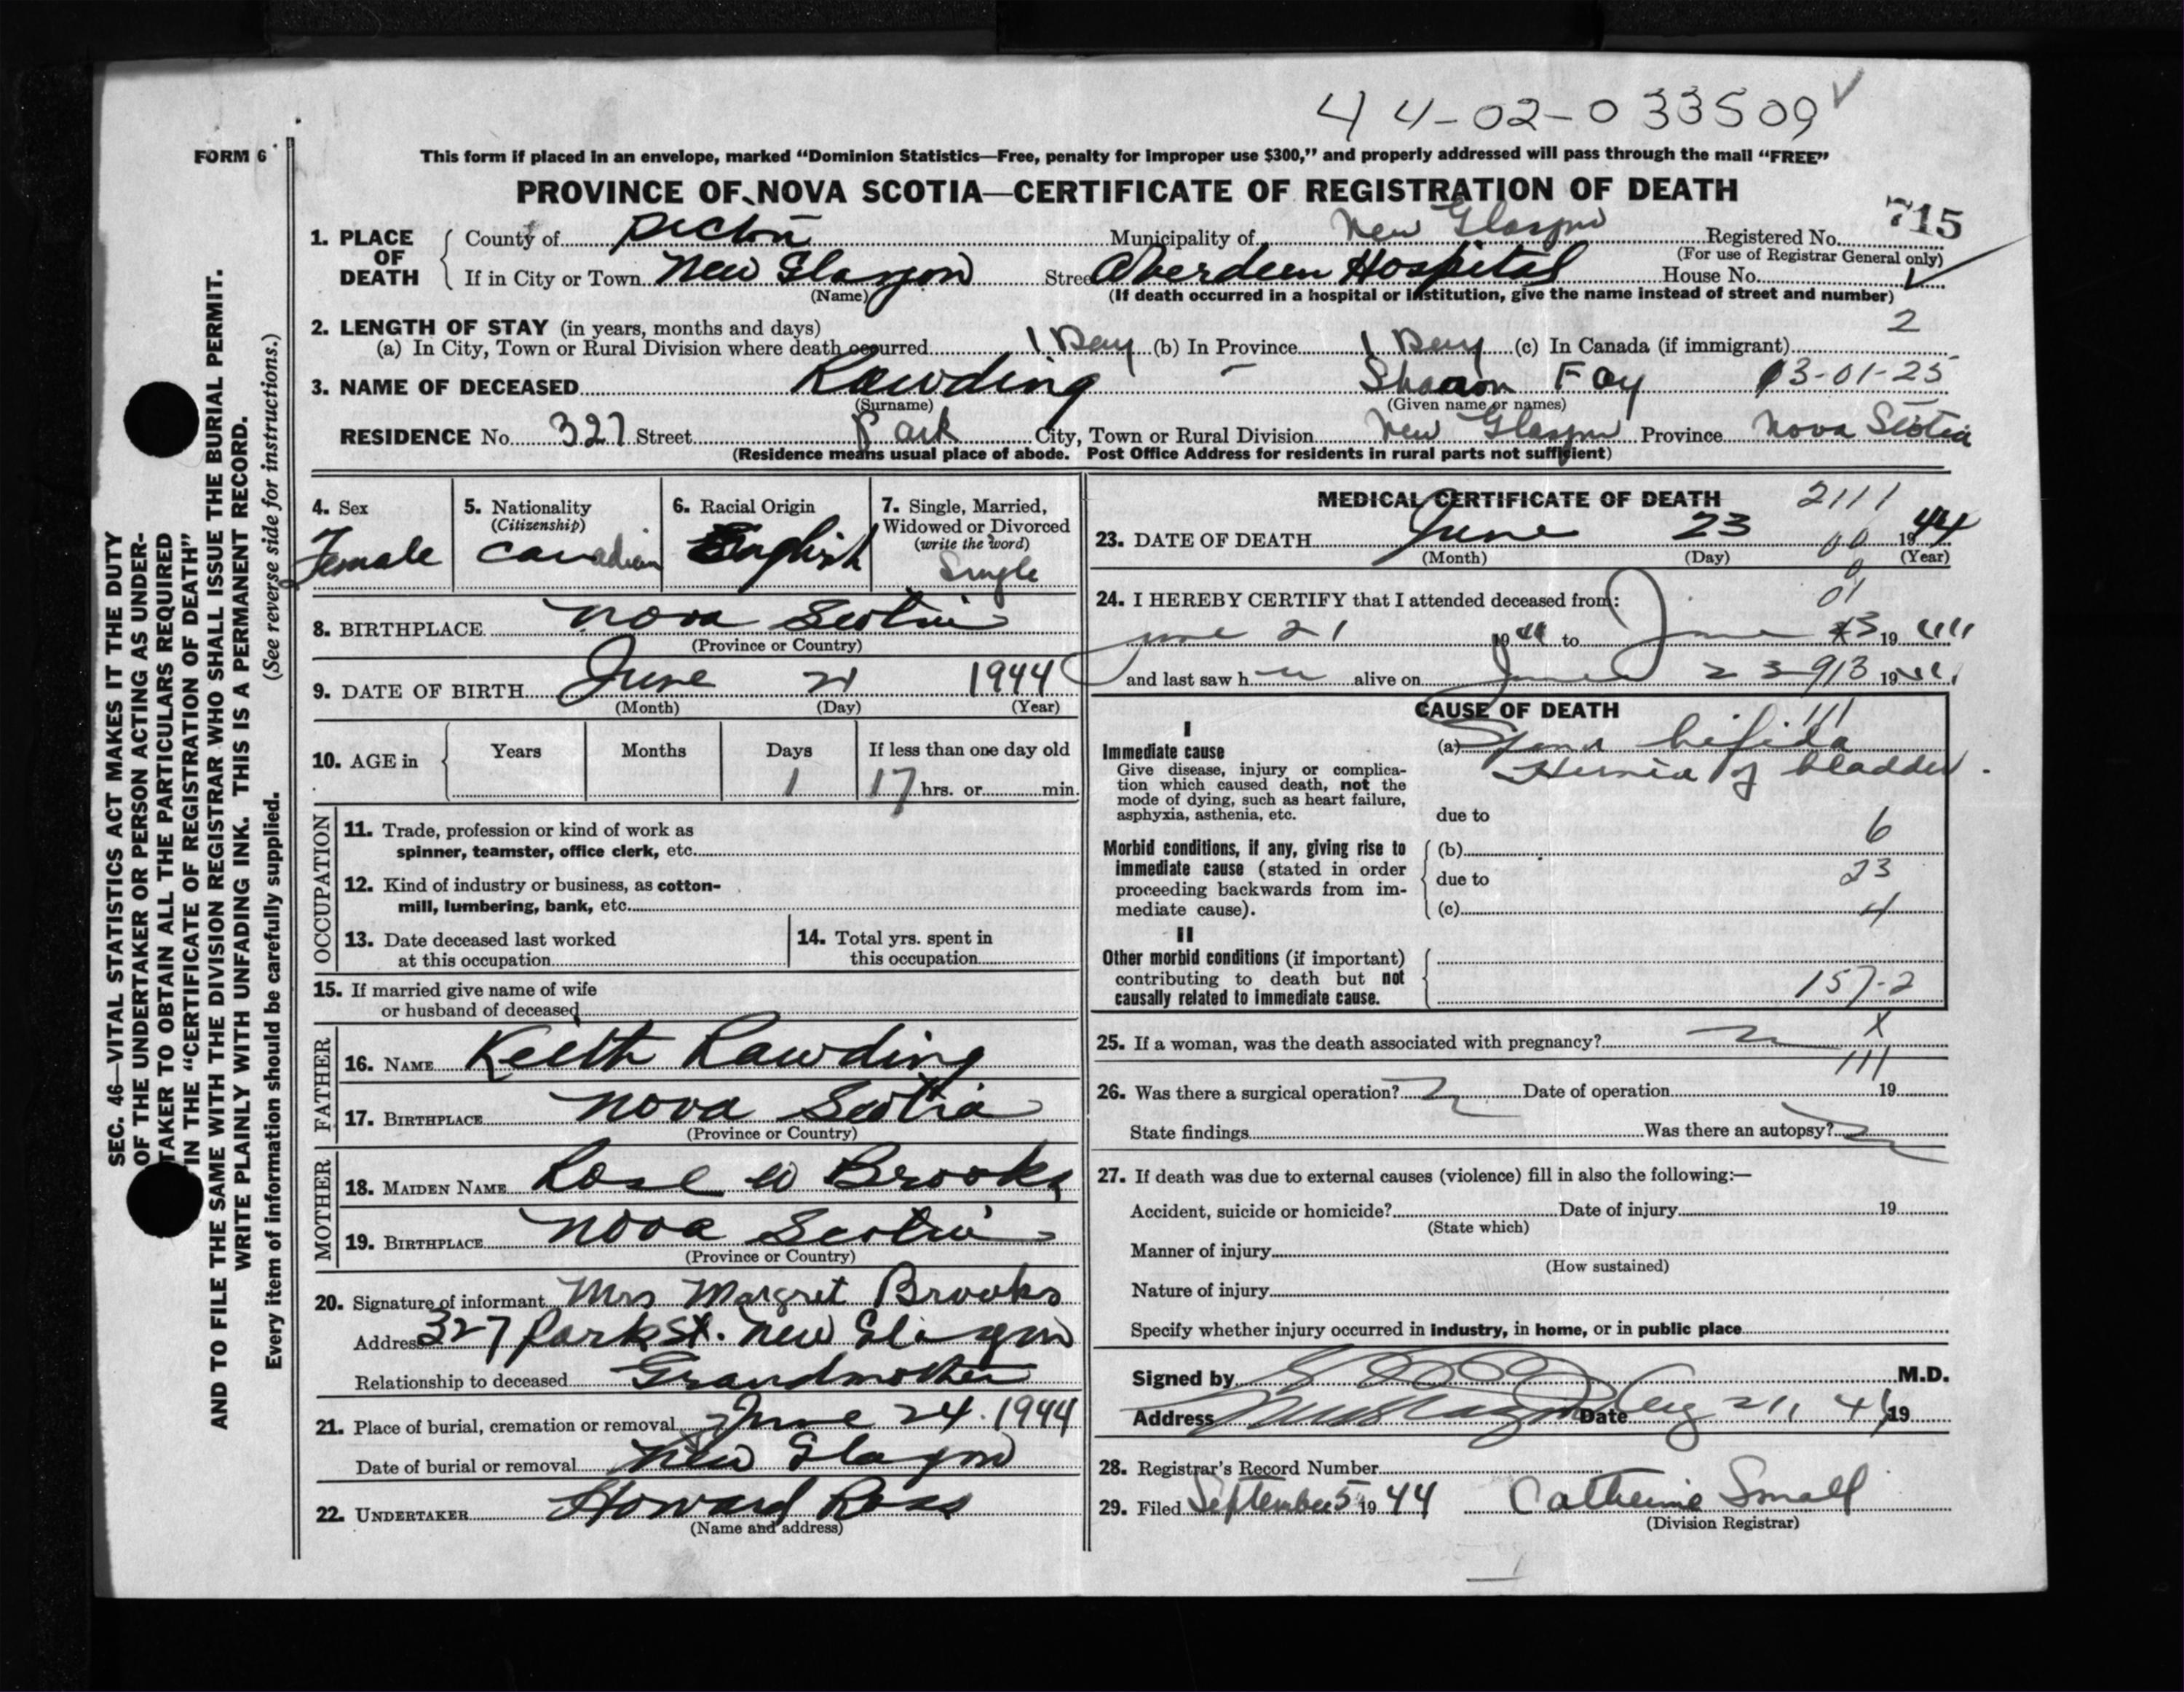 44-02-033509
FORM 6
This form if placed in an envelope, marked “Dominion Statistics—Free, penalty for improper use $300,” and properly addressed will pass through the mail “FREE”
PROVINCE OF NOVA SCOTIA—CERTIFICATE OF REGISTRATION OF DEATH
715
1. PLACE OF DEATH County of Pictou Municipality of New Glasgow Registered No.
(For use of Registrar General only)
If in City or Town New Glasgow Street Aberdeen Hospital House No.
(Name) (If death occurred in a hospital or institution, give the name instead of street and number)
2
2. LENGTH OF STAY (in years, months and days)
(a) In City, Town or Rural Division where death occurred 1 Day (b) In Province 1 Day (c) In Canada (if immigrant)
3. NAME OF DECEASED Rawding Sharon Fay 03-01-25
(Surname) (Given name or names)
RESIDENCE No. 327 Street Park City, Town or Rural Division New Glasgow Province Nova Scotia
(Residence means usual place of abode. Post Office Address for residents in rural parts not sufficient)
4. Sex Female
5. Nationality (Citizenship) Canadian
6. Racial Origin English
7. Single, Married, Widowed or Divorced (write the word) Single
8. BIRTHPLACE Nova Scotia
(Province or Country)
9. DATE OF BIRTH June 21 1944
(Month) (Day) (Year)
10. AGE in Years Months Days If less than one day old
1 17 hrs. or min.
OCCUPATION
11. Trade, profession or kind of work as
spinner, teamster, office clerk, etc.
12. Kind of industry or business, as cotton-
mill, lumbering, bank, etc.
13. Date deceased last worked
at this occupation
14. Total yrs. spent in
this occupation
15. If married give name of wife
or husband of deceased
FATHER
16. NAME Keith Rawding
17. BIRTHPLACE Nova Scotia
(Province or Country)
MOTHER
18. MAIDEN NAME Rose W Brooks
19. BIRTHPLACE Nova Scotia
(Province or Country)
20. Signature of informant Mrs Margret Brooks
Address 327 Park St. New Glasgow
Relationship to deceased Grandmother
21. Place of burial, cremation or removal June 24. 1944
Date of burial or removal New Glasgow
22. UNDERTAKER Howard Ross
(Name and address)
MEDICAL CERTIFICATE OF DEATH 2111
23. DATE OF DEATH June 23 1944
(Month) (Day) (Year)
24. I HEREBY CERTIFY that I attended deceased from: 01
June 21 1944 to June 23 1944
and last saw h alive on June 23 913 1944
CAUSE OF DEATH
111
I
Immediate cause
Give disease, injury or complica-
tion which caused death, not the
mode of dying, such as heart failure,
asphyxia, asthenia, etc.
(a) Spina bifida
Hernia of bladder.
due to
6
Morbid conditions, if any, giving rise to
immediate cause (stated in order
proceeding backwards from im-
mediate cause).
(b)
due to 23
(c) 4
II
Other morbid conditions (if important)
contributing to death but not
causally related to immediate cause.
157-2
25. If a woman, was the death associated with pregnancy? X
111
26. Was there a surgical operation? Date of operation 19
State findings Was there an autopsy?
27. If death was due to external causes (violence) fill in also the following:—
Accident, suicide or homicide? Date of injury 19
(State which)
Manner of injury
(How sustained)
Nature of injury
Specify whether injury occurred in industry, in home, or in public place
Signed by M.D.
Address New Glasgow Date Aug 21, 44 19
28. Registrar's Record Number
29. Filed September 5 1944 Catherine Small
(Division Registrar)
SEC. 46—VITAL STATISTICS ACT MAKES IT THE DUTY
OF THE UNDERTAKER OR PERSON ACTING AS UNDER-
TAKER TO OBTAIN ALL THE PARTICULARS REQUIRED
IN THE “CERTIFICATE OF REGISTRATION OF DEATH”
AND TO FILE THE SAME WITH THE DIVISION REGISTRAR WHO SHALL ISSUE THE BURIAL PERMIT.
WRITE PLAINLY WITH UNFADING INK. THIS IS A PERMANENT RECORD.
Every item of information should be carefully supplied. (See reverse side for instructions.)